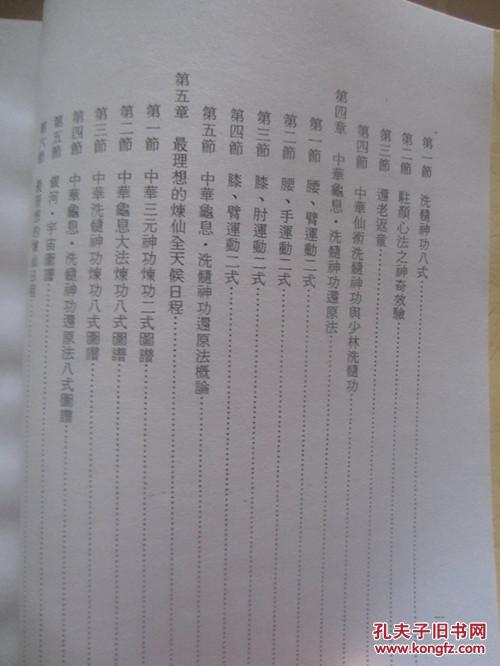 第一節 洗髓神功八式
第二節 駐顏心法之神奇效驗
第三節 還老返童
第四節 中華仙術洗髓神功與少林洗髓功
第四章 中華龜息·洗髓神功還原法
第一節 腰、臂運動二式
第二節 腰、手運動二式
第三節 膝、肘運動二式
第四節 膝、臂運動二式
第五節 中華龜息·洗髓神功還原法概論
第五章 最理想的煉仙全天候日程
第一節 中華三元神功煉功二式圖譜
第二節 中華龜息大法煉功八式圖譜
第三節 中華洗髓神功煉功八式圖譜
第四節 中華龜息·洗髓神功還原法八式圖譜
第五節 銀河·宇宙圖譜
第六節 最理想的煉仙日程
孔夫子旧书网
www.kongfz.com